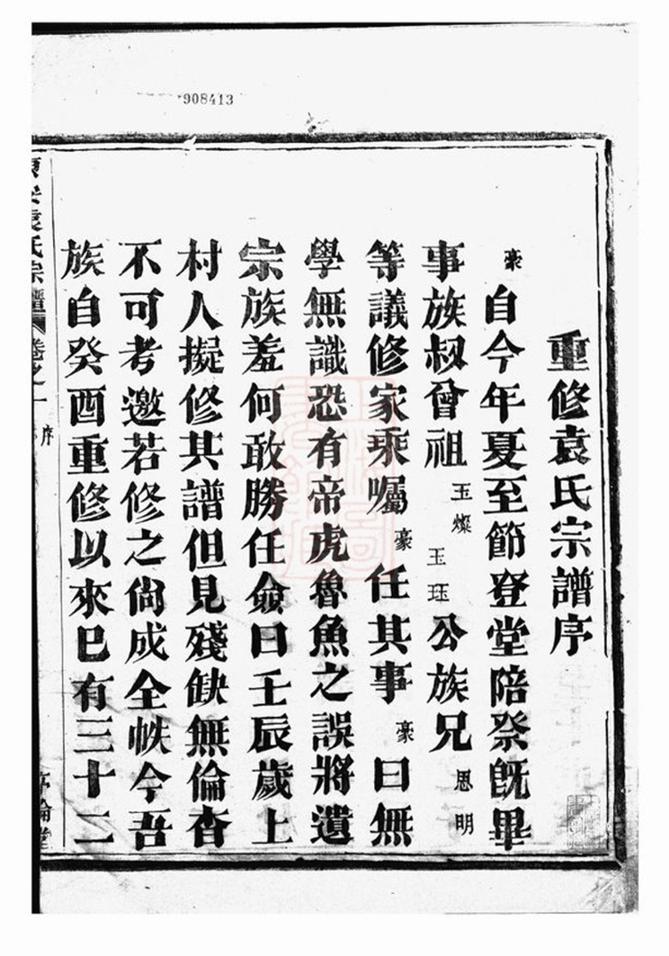 908413
重修袁氏宗譜序
豪自今年夏至節登堂陪祭旣畢
事族叔曾祖玉燦玉珏公族兄思明
等議修家乘囑豪任其事豪曰無
學無識恐有帝虎魯魚之誤將遺
宗族羞何敢勝任僉曰壬辰歲上
村人擬修其譜但見殘缺無倫杳
不可考邀若修之尙成全帙今吾
族自癸酉重修以來巳有三十二
袁氏宗譜 卷之一 序